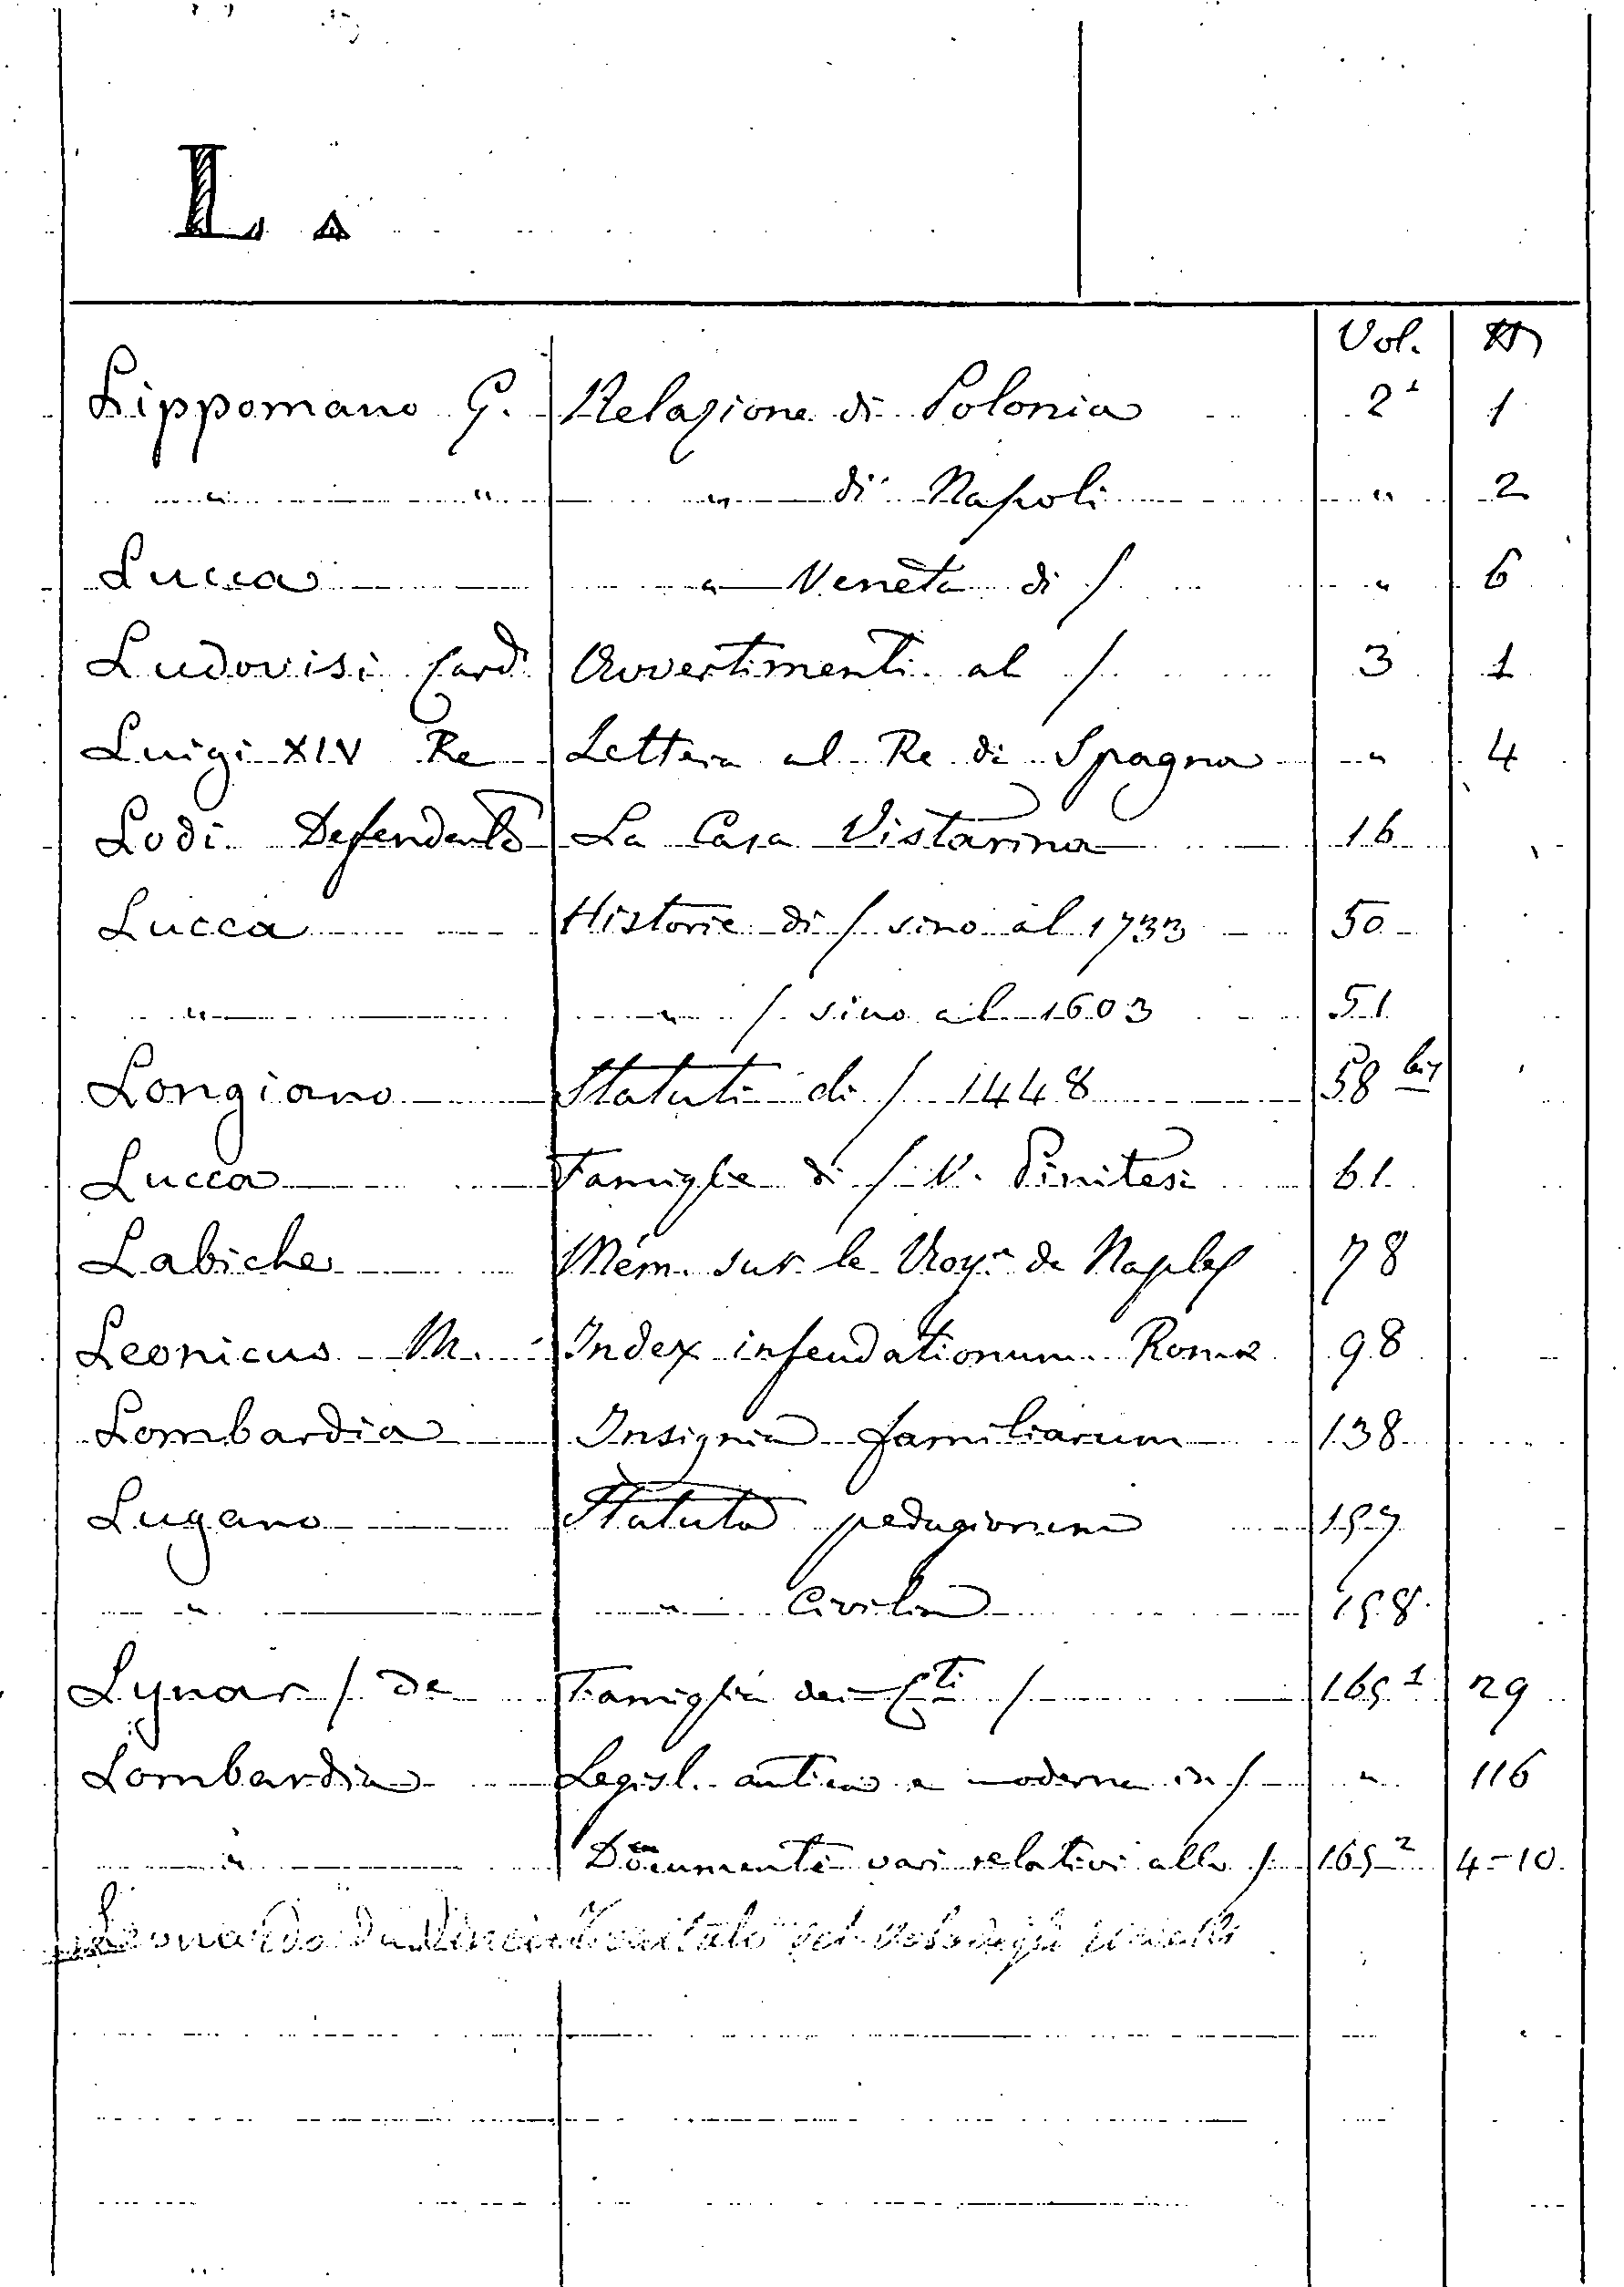 L.
Vol. N
Lippomano G. Relazione di Polonia 2¹ 1
" " " di Napoli " 2
Lucca " Veneta di / " 6
Ludovisi Card. Avvertimenti al / 3 1
Luigi XIV Re Lettera al Re di Spagna " 4
Lodi Defendente La Casa Vistarina 16
Lucca Historie di / sino al 1733 50
" " / sino al 1603 51
Longiano Statuti di / 1448 58 bis
Lucca Famiglie di / V. Pinitesi 61
Labiche Mém. sur le Roy.e de Naples 78
Leonicus M. Index infeudationum Romæ 98
Lombardia Insignia familiarum 138
Lugano Statuta pedagiorum 157
" " Civilia 158
Lynar / de Famiglia dei Cti / 165¹ 29
Lombardia Legisl. antica e moderna in / " 116
" Documenti vari relativi alla / 165² 4-10
Leonardo da Vinci Trattato del volo degli uccelli